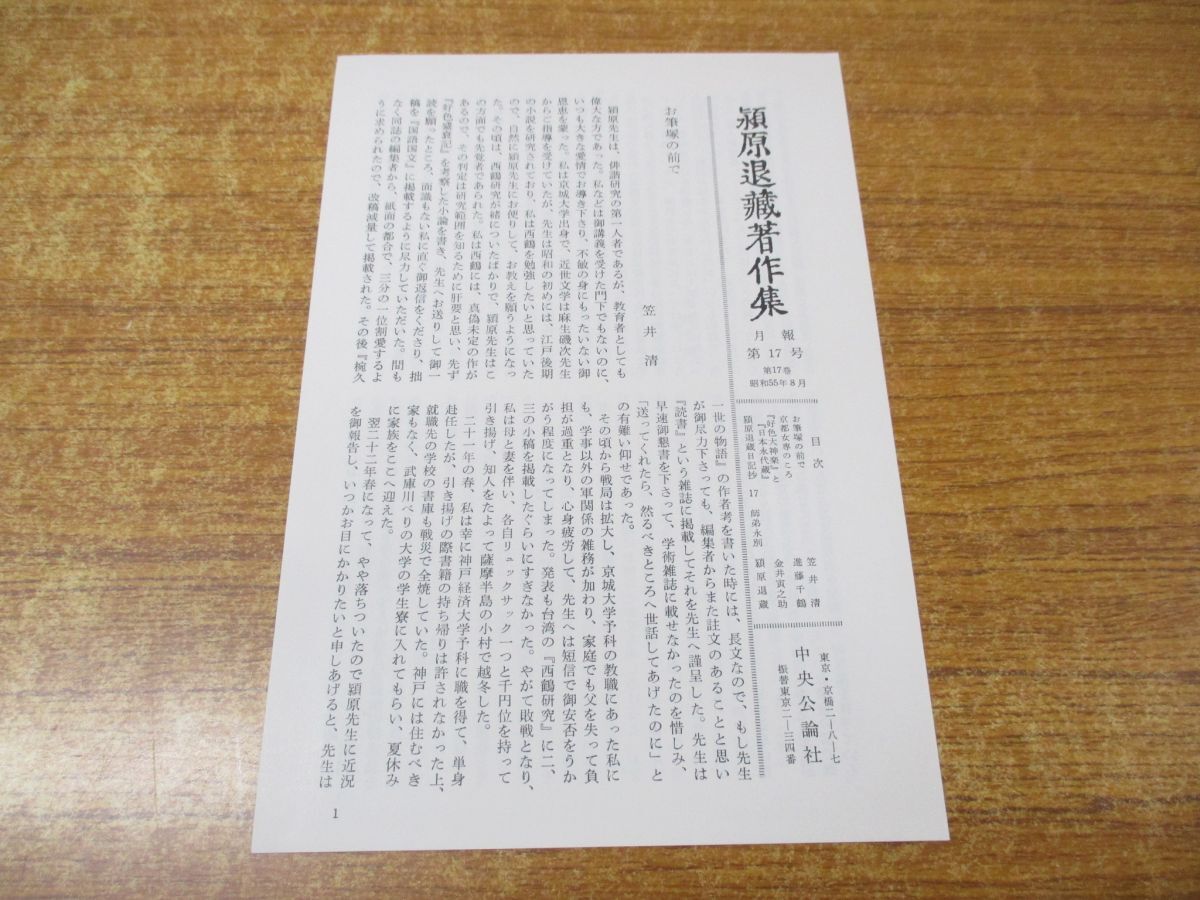 潁原退藏著作集
月報
第17号
第17巻
昭和55年8月
目次
お筆塚の前で 笠井清
京都女専のころ 進藤千鶴
『好色大神楽』と
『日本永代蔵』 金井寅之助
潁原退蔵日記抄 17 師弟永別 潁原退蔵
東京・京橋二―八―七
中央公論社
振替東京二―三四番
お筆塚の前で
笠井清
潁原先生は、俳諧研究の第一人者であるが、教育者としても
偉大な方であった。私などは御講義を受けた門下でもないのに、
いつも大きな愛情でお導き下さり、不敏の身にもったいない御
恩恵を蒙った。私は京城大学出身で、近世文学は麻生磯次先生
からご指導を受けていたが、先生は昭和の初めには、江戸後期
の小説を研究されており、私は西鶴を勉強したいと思っていた
ので、自然に潁原先生にお便りして、お教えを願うようになっ
た。その頃は、西鶴研究が緒についたばかりで、潁原先生はこ
の方面でも先覚者であられた。私は西鶴には、真偽未定の作が
あるので、その判定は研究範囲を知るために肝要と思い、先ず
『好色盛衰記』を考察した小論を書き、先生へお送りして御一
読を願ったところ、面識もない私に直ぐ御返信をくださり、拙
稿を『国語国文』に掲載するように尽力していただいた。間も
なく同誌の編集者から、紙面の都合で、三分の一位割愛するよ
うに求められたので、改稿減量して掲載された。その後『椀久
一世の物語』の作者考を書いた時には、長文なので、もし先生
が御尽力下さっても、編集者からまた註文のあることと思い
『読書』という雑誌に掲載してそれを先生へ謹呈した。先生は
早速御懇書を下さって、学術雑誌に載せなかったのを惜しみ、
「送ってくれたら、然るべきところへ世話してあげたのに」と
の有難い仰せであった。
その頃から戦局は拡大し、京城大学予科の教職にあった私に
も、学事以外の軍関係の雑務が加わり、家庭でも父を失って負
担が過重となり、心身疲労して、先生へは短信で御安否をうか
がう程度になってしまった。発表も台湾の『西鶴研究』に二、
三の小稿を掲載したぐらいにすぎなかった。やがて敗戦となり、
私は母と妻を伴い、各自リュックサック一つと千円位を持って
引き揚げ、知人をたよって薩摩半島の小村で越冬した。
二十一年の春、私は幸に神戸経済大学予科に職を得て、単身
赴任したが、引き揚げの際書籍の持ち帰りは許されなかった上、
就職先の学校の書庫も戦災で全焼していた。神戸には住むべき
家もなく、武庫川べりの大学の学生寮に入れてもらい、夏休み
に家族をここへ迎えた。
翌二十二年春になって、やや落ちついたので潁原先生に近況
を御報告し、いつかお目にかかりたいと申しあげると、先生は
1